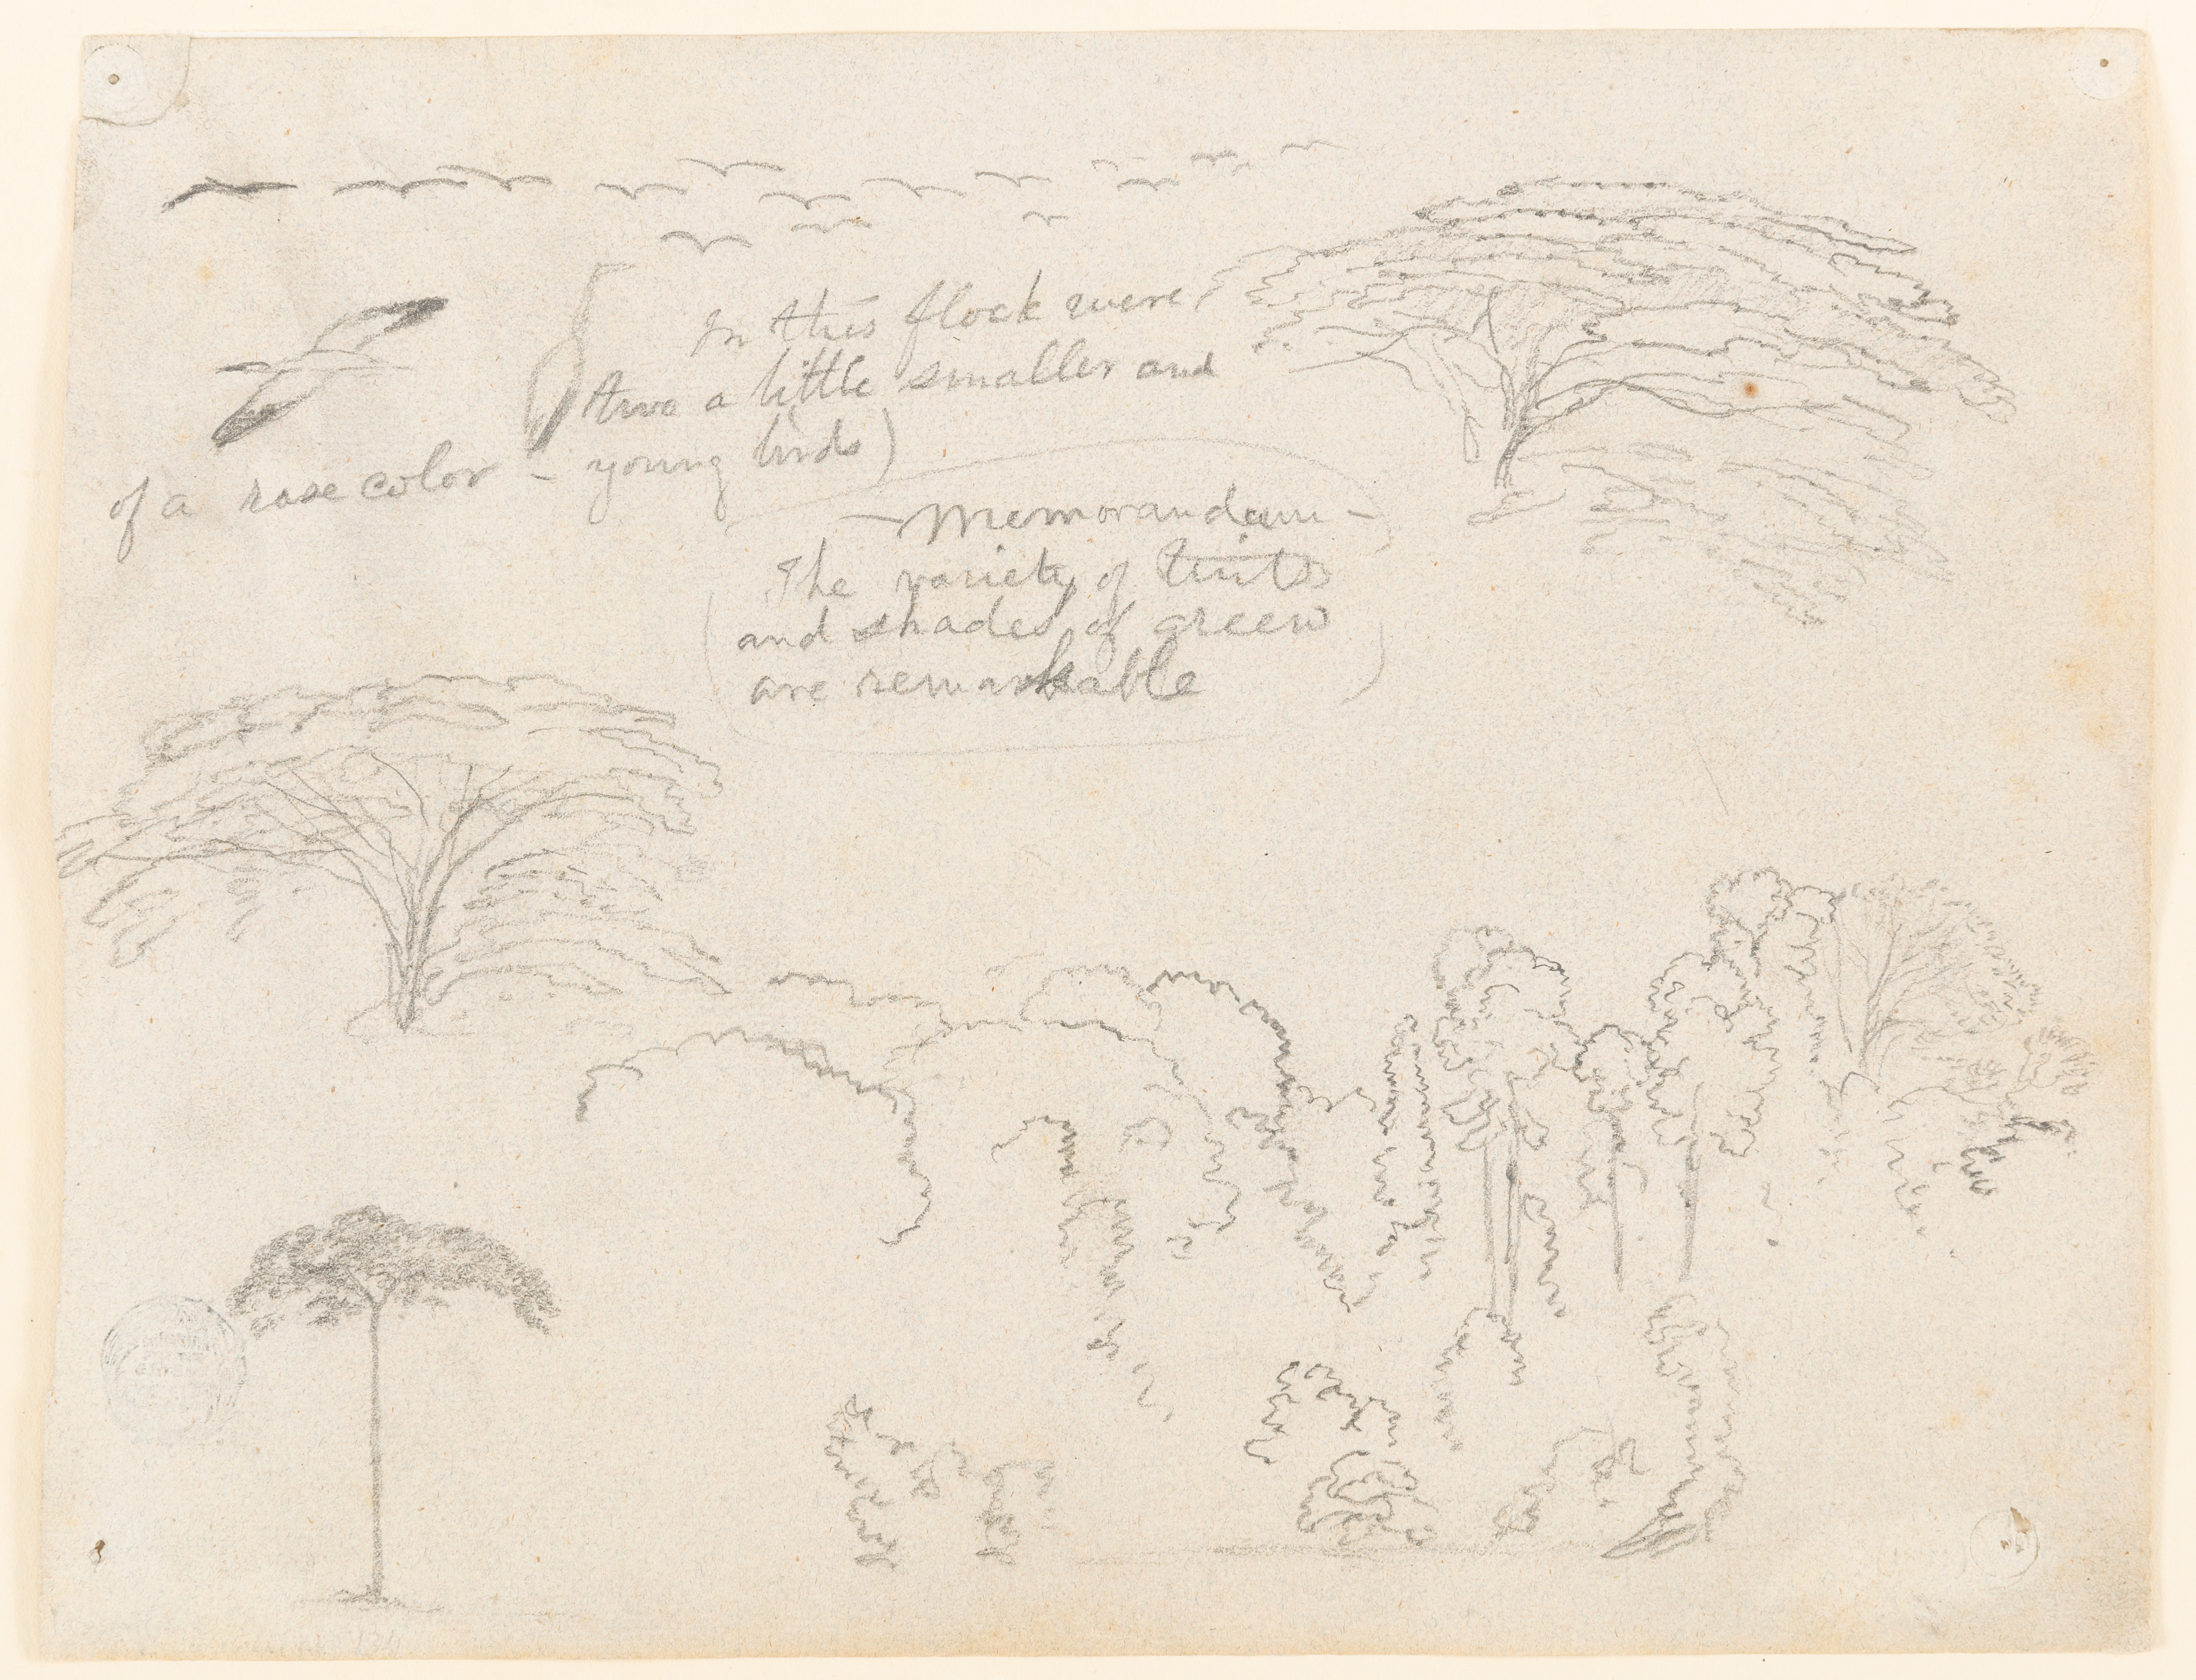 In this flock were
two a little smaller and
of a rose color - young birds)
- Memorandum -
The variety of tints
and shades of green
are remarkable